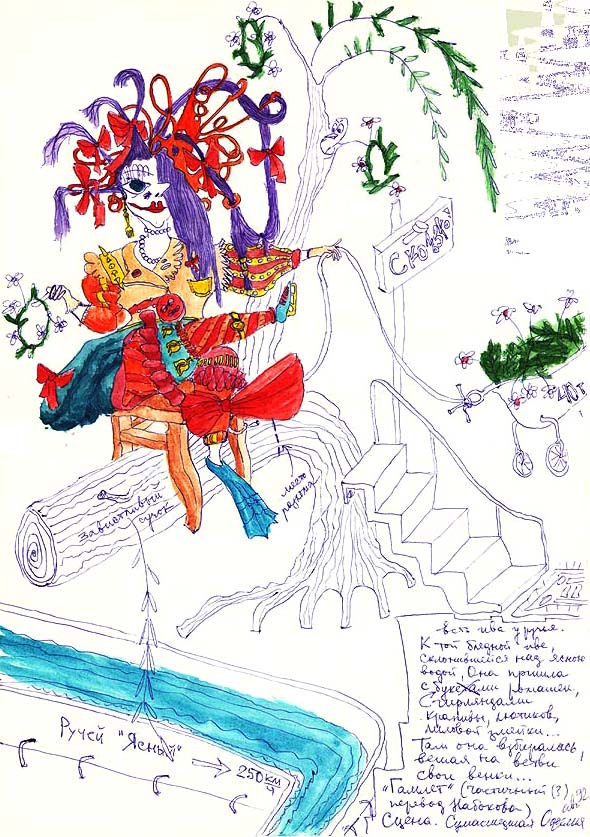 СКОЛЬЗКО
Завистливый
сучок
место
Ручей "Ясный"
250 км
ч
есть ива у ручья.
К той бледной иве,
склонившейся над ясною
водой, Она пришла
с букетами ромашек,
С гирляндами
крапивы, лютиков,
лиловой змейки...
Там она взбиралась,
вешая на ветви
свои венки...
"Гамлет" (частичный (?)
перевод Набокова)
Сцена. Сумасшедшая Офелия
92